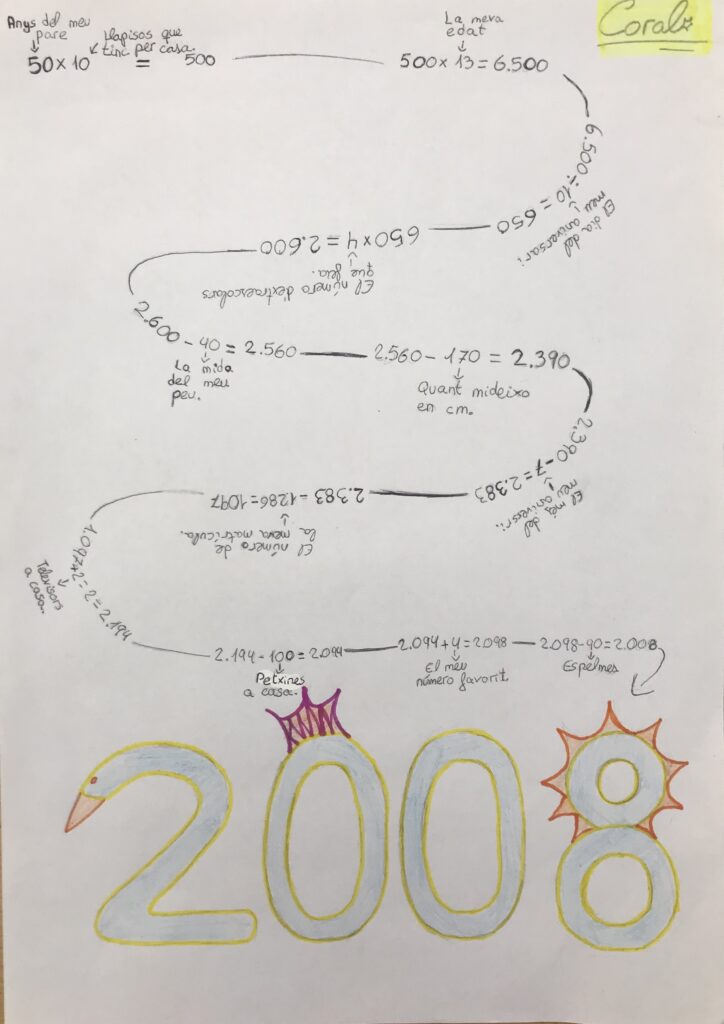 Coral
Anys del meu
pare
Llapisos que
tinc per casa.
50 x 10 = 500
La meva
edat
500 x 13 = 6.500
6.500 ÷ 10 = 650
El dia del
meu aniversari
650 x 4 = 2.600
El número d'extraescolars
que feia.
2.600 - 40 = 2.560
La mida
del meu
peu.
2.560 - 170 = 2.390
Quant mideixo
en cm.
2.390 - 7 = 2.383
El mes del
meu aniversri.
2.383 - 1.286 = 1097
El número de
la meva matrícula.
1.097 x 2 = 2 = 2.194
Televisors
a casa.
2.194 - 100 = 2.094
Petxines
a casa.
2.094 + 4 = 2.098
El meu
número favorit
2.098 - 90 = 2.008
Espelmes
2008